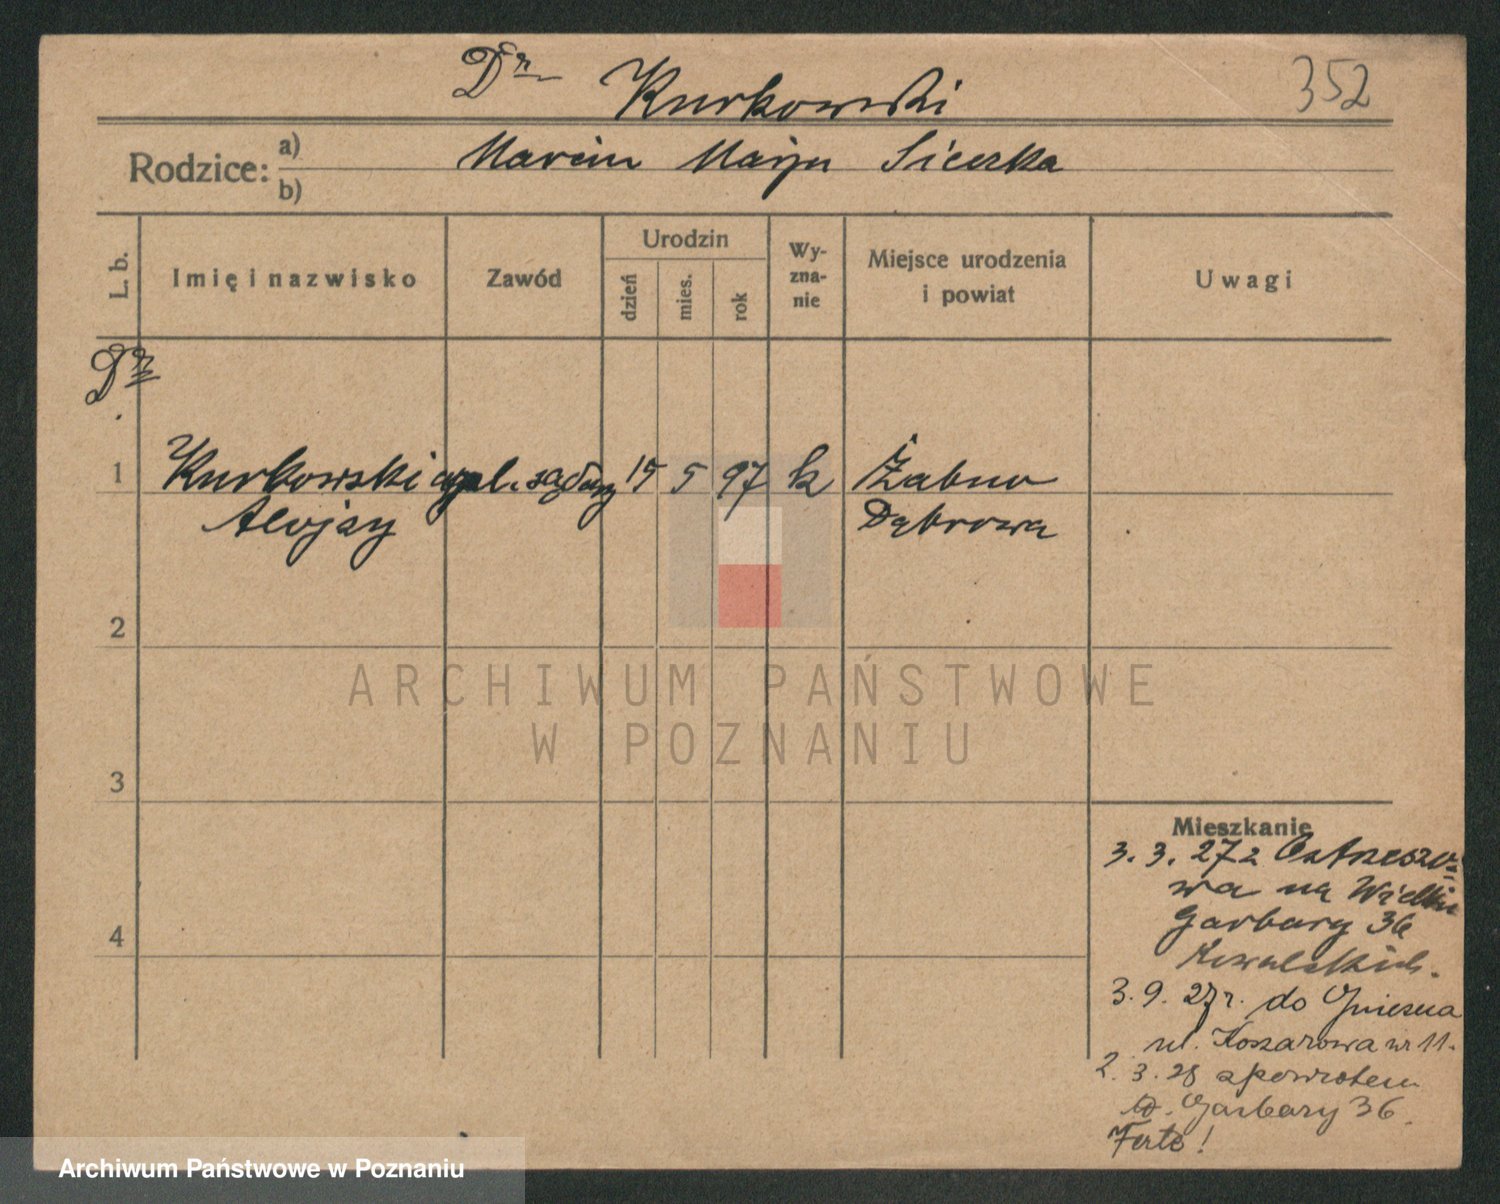 Dr Kurkowski
352
Rodzice: a) Marcin Maria Sieczka
b)
L. b.
Imię i nazwisko
Zawód
Urodzin
dzień
mies.
rok
Wy-
zna-
nie
Miejsce urodzenia
i powiat
Uwagi
Dr
1 Kurkowski apl. sądowy 15 5 97 k Żabno
Alojzy Dąbrowa
2
3
4
Mieszkanie
3. 3. 27 z Ostrzeszo-
wa na Wielkie
Garbary 36
Kowalskich.
3. 9. 27 r. do Gniezna
ul. Koszarowa nr 11.
2. 3. 28 z powrotem
W. Garbary 36
ARCHIWUM PAŃSTWOWE
W POZNANIU
Archiwum Państwowe w Poznaniu